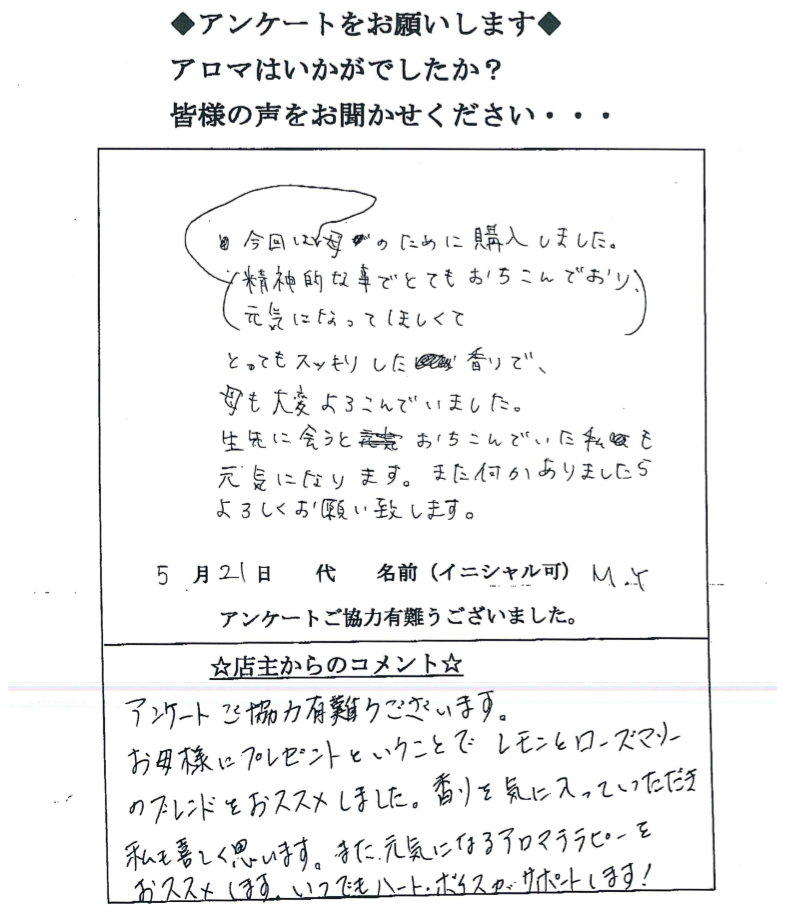 ◆アンケートをお願いします◆
アロマはいかがでしたか？
皆様の声をお聞かせください・・・
今回は母のために購入しました。
(精神的な事でとてもおちこんでおり、
元気になってほしくて)
とってもスッキリした香りで、
母も大変よろこんでいました。
生先に会うとおちこんでいた私も
元気になります。また何かありましたら
よろしくお願い致します。
5月21日　代　名前（イニシャル可） M.Y
アンケートご協力有難うございました。
☆店主からのコメント☆
アンケートご協力有難うございます。
お母様にプレゼントということでレモンとローズマリー
のブレンドをおススメしました。香りを気に入っていただき
私も喜しく思います。また元気になるアロマテラピーを
おススメします。いつでもハート・ボイスがサポートします！